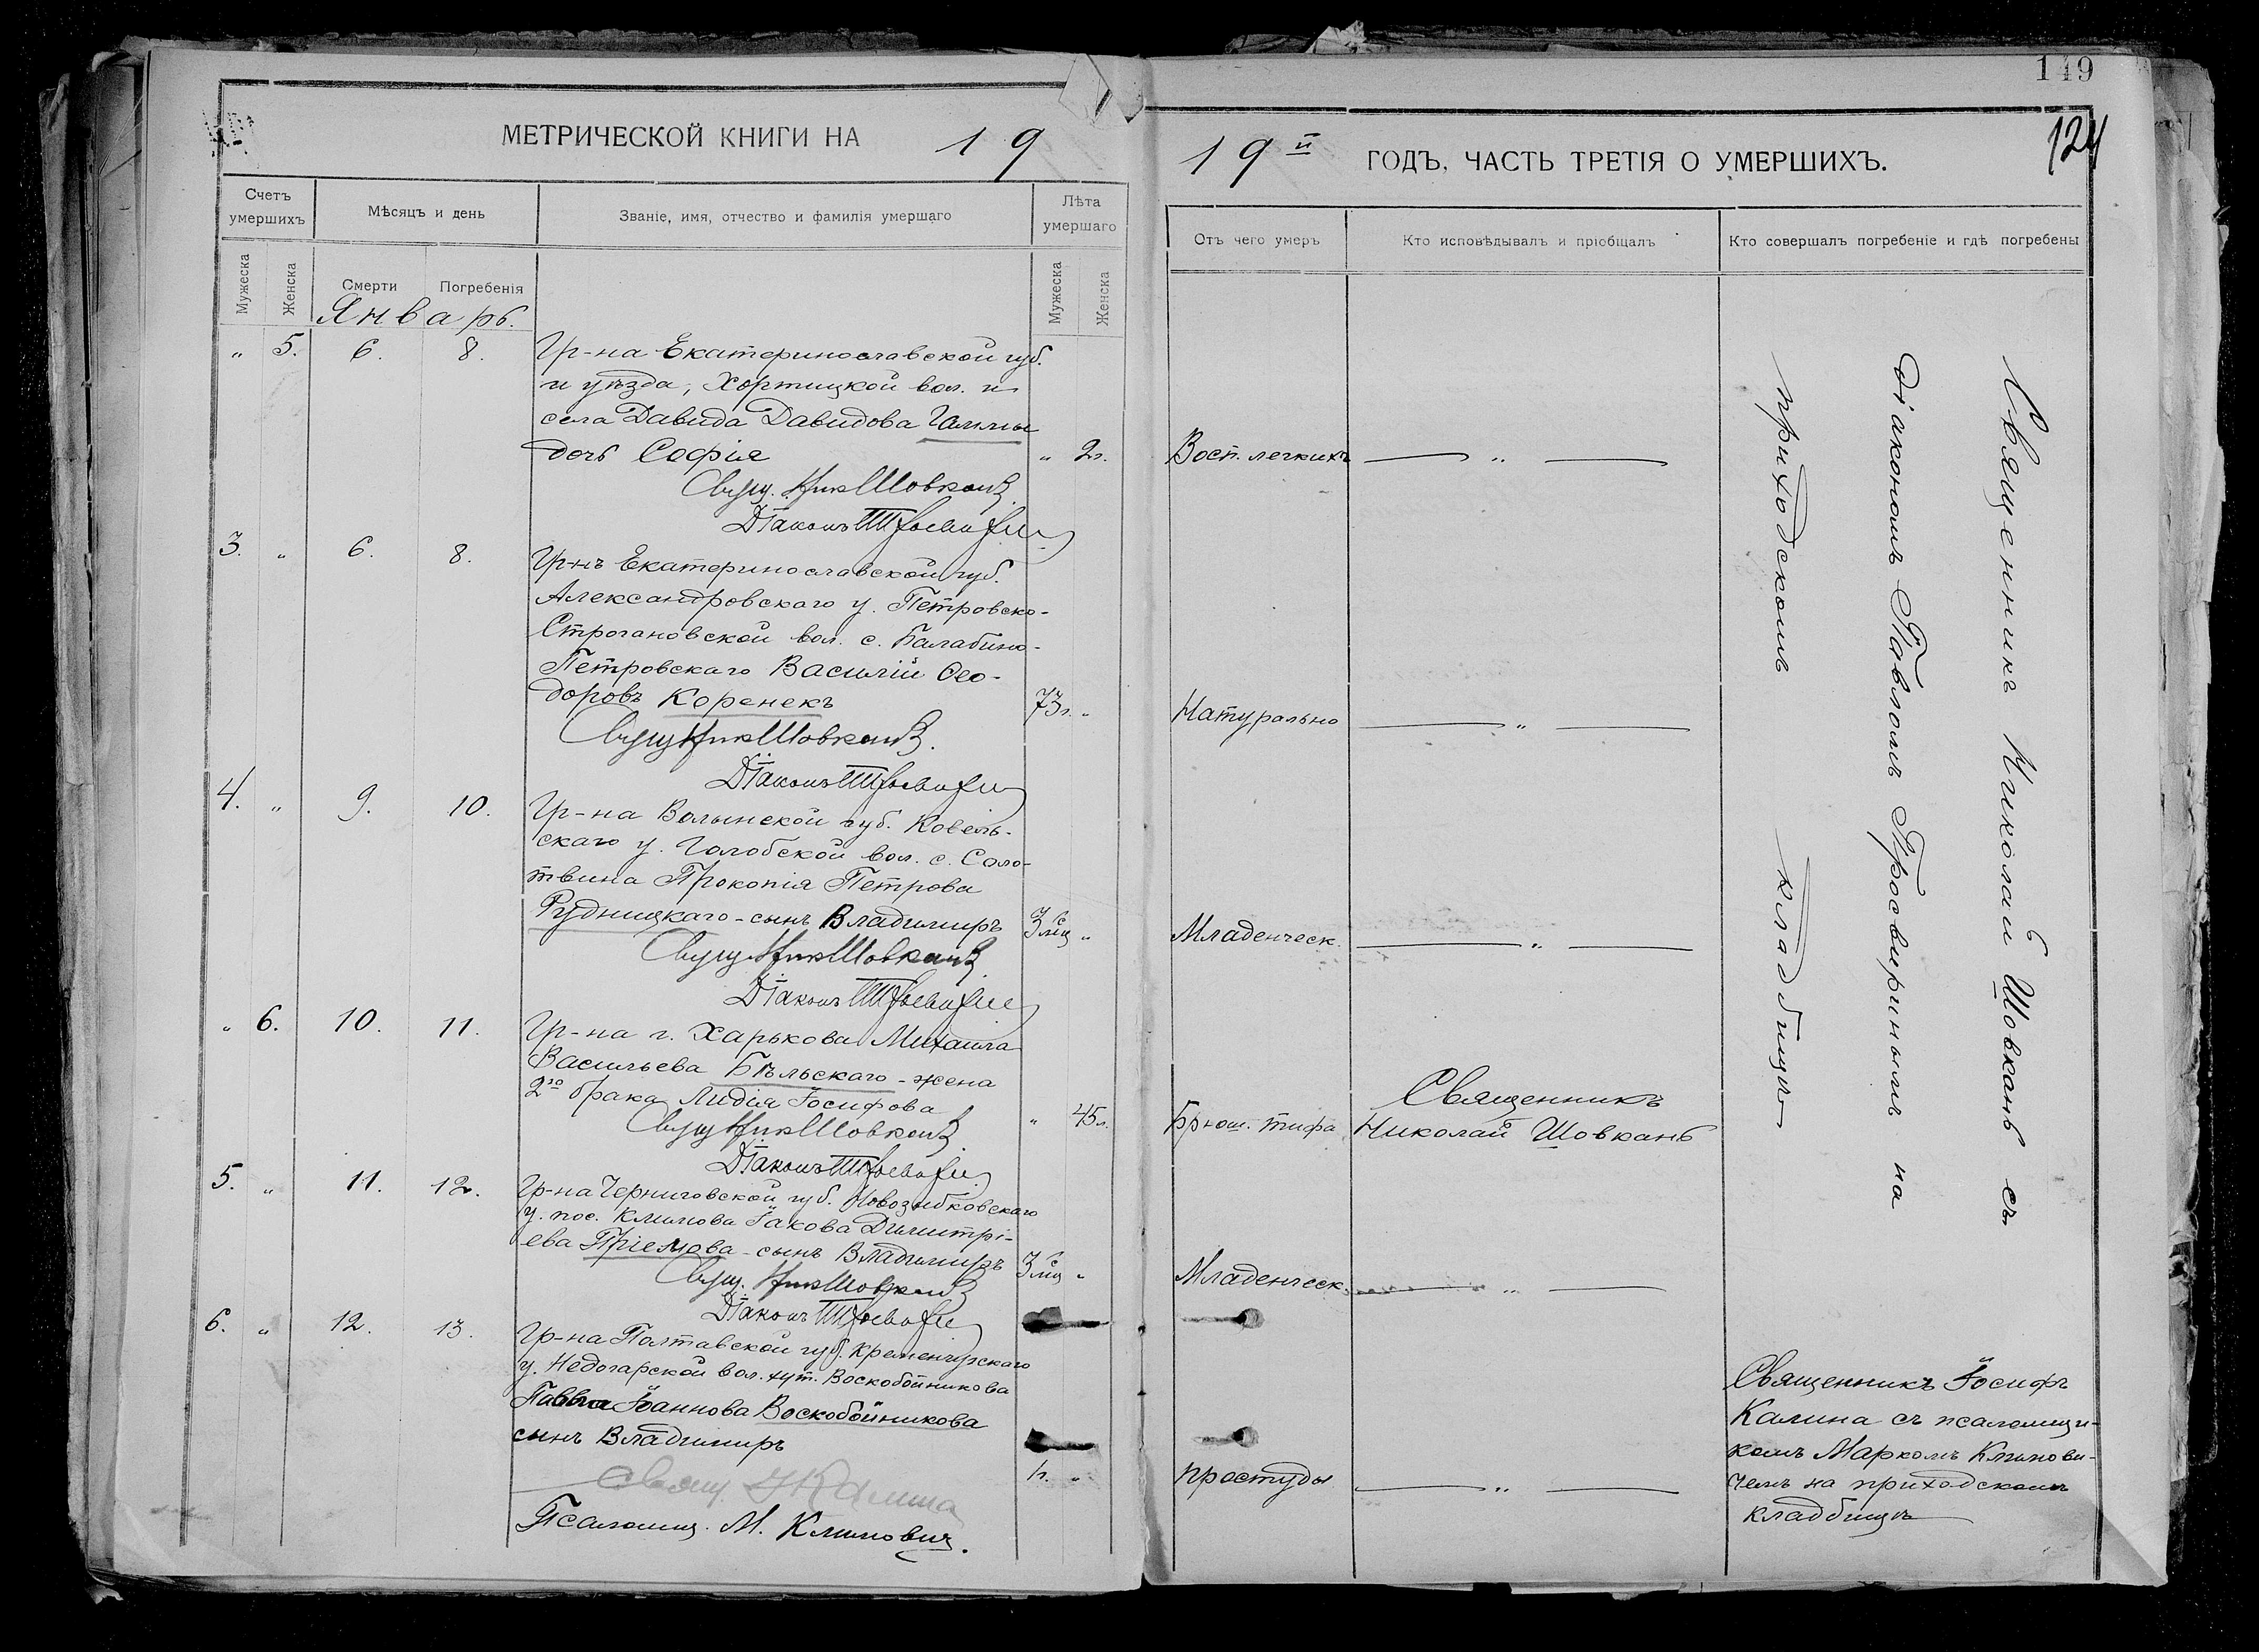 149
124
МЕТРИЧЕСКОЙ КНИГИ НА 19
19й ГОДЪ, ЧАСТЬ ТРЕТІЯ О УМЕРШИХЪ.
Счетъ умершихъ
Мѣсяцъ и день
Званіе, имя, отчество и фамилія умершаго
Лѣта умершаго
Отъ чего умеръ
Кто исповѣдывалъ и пріобщалъ
Кто совершалъ погребеніе и гдѣ погребены
Мужеска
Женска
Смерти
Погребенія
Мужеска
Женска
Январь.
" 5. 6. 8. Гр-на Екатеринославской губ.
и уѣзда, Хортицкой вол. и
села Давида Давидова Гаммы
дочь Софія " 2г. Восп. легкихъ — " —
Свящ. Ник Шовкань
Діаконъ
3. " 6. 8. Гр-нъ Екатеринославской губ.
Александровскаго у. Петровско-
Строгановской вол. с. Балабино-
Петровскаго Василій Ѳео-
доровъ Коренекъ 73г. " Натурально — " —
Свящ Ник Шовкань.
Діаконъ
4. " 9. 10. Гр-на Волынской губ. Ковель-
скаго у. Голобской вол. с. Соло-
твина Прокопія Петрова
Рудницкаго - сынъ Владимиръ 3 мц " Младенческ. — " —
Свящ Ник Шовкань
Діаконъ
" 6. 10. 11. Гр-на г. Харькова Михаила
Васильева Бѣльскаго - жена
2го брака Лидія Іосифова " 45л. Брюш. тифа
Священникъ
Николай Шовкань
Свящ Ник Шовкань
Діаконъ
5. " 11. 12. Гр-на Черниговской губ. Новозыбковскаго
у. пос. Климова Іакова Димитрі-
ева Пріемова - сынъ Владимиръ 3 мц " Младенческ. — " —
Свящ. Ник Шовкань
Діаконъ
6. " 12. 13. Гр-на Полтавской губ. Кременчугскаго
у. Недогарской вол. хут. Воскобойникова
Павла Іоаннова Воскобойникова
сынъ Владимиръ 1г. " простуды — " —
Свящ. І Калина
Псаломщ. М. Климовичъ.
Священникъ Николай Шовкань съ
діакономъ Павломъ Просвиринымъ на
приходскомъ кладбищѣ
Священникъ Іосифъ
Калина съ псаломщи-
комъ Маркомъ Климови-
чемъ на приходскомъ
кладбищѣ